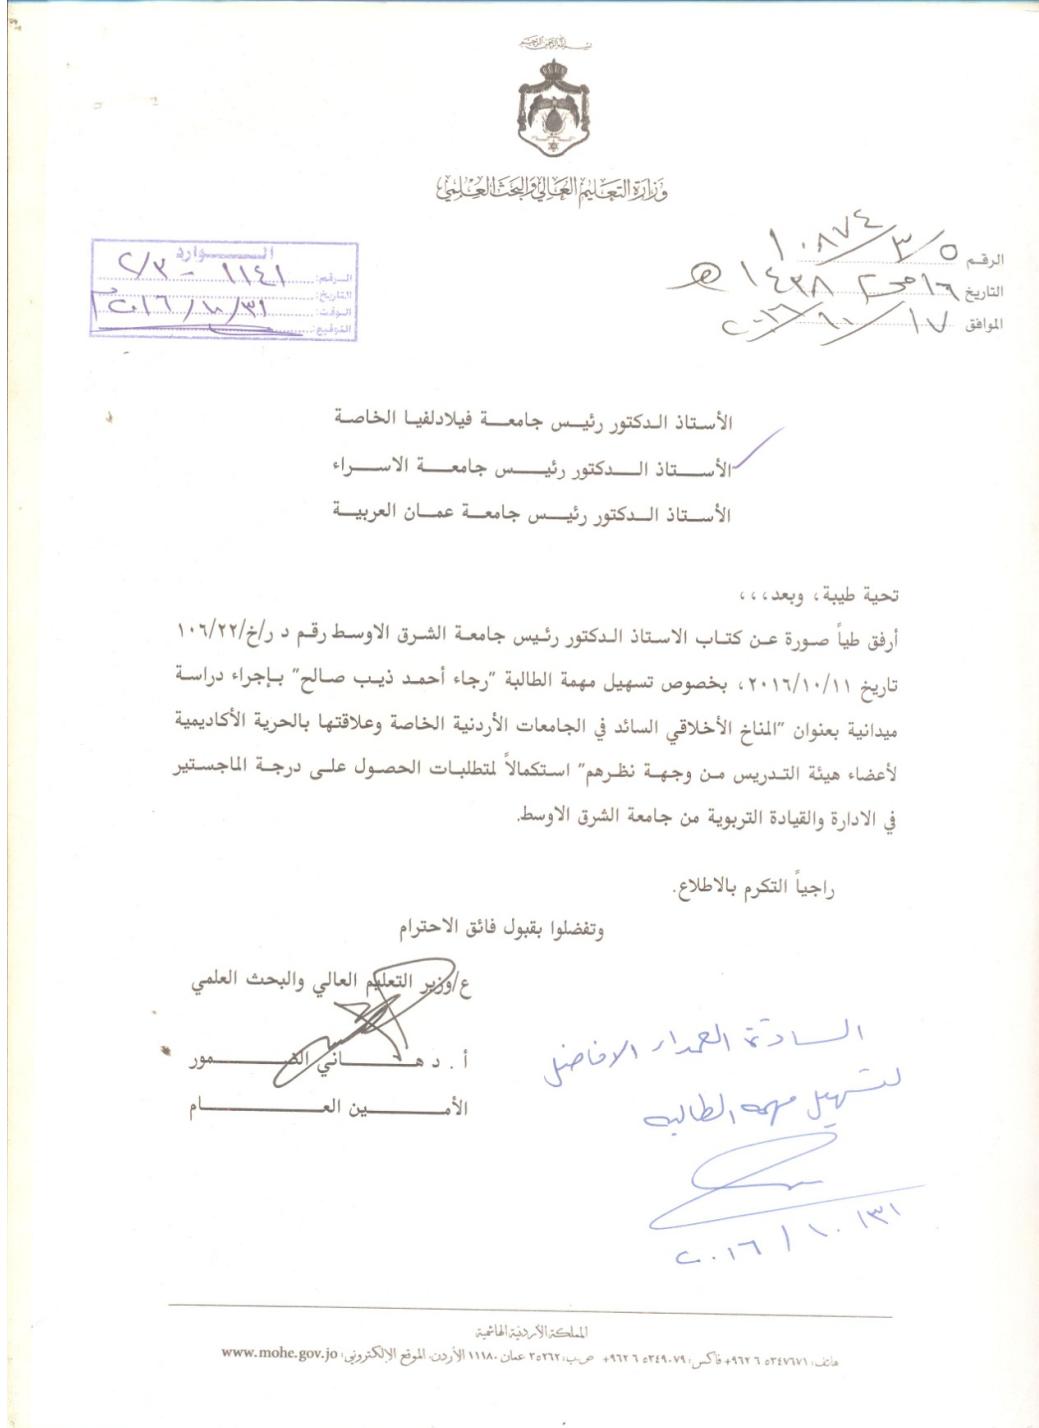 بسم الله الرحمن الرحيم
وزارة التعليم العالي والبحث العلمي
الرقم ١٠٨٧٤/٣/٥
التاريخ ١٦ محرم ١٤٣٨ هـ
الموافق ١٧/١٠/٢٠١٦
الـــوارد
الرقم: ١١٤١ - ٢/٣
التاريخ:
الوقت: ٢٠١٦/١٠/٣١
التوقيع:
الأستاذ الدكتور رئيس جامعة فيلادلفيا الخاصة
الأستاذ الدكتور رئيس جامعة الاسراء
الأستاذ الدكتور رئيس جامعة عمان العربية
تحية طيبة، وبعد،،،
أرفق طياً صورة عن كتاب الاستاذ الدكتور رئيس جامعة الشرق الاوسط رقم د ر/خ/١٠٦/٢٢
تاريخ ٢٠١٦/١٠/١١، بخصوص تسهيل مهمة الطالبة "رجاء أحمد ذيب صالح" بإجراء دراسة
ميدانية بعنوان "المناخ الأخلاقي السائد في الجامعات الأردنية الخاصة وعلاقتها بالحرية الأكاديمية
لأعضاء هيئة التدريس من وجهة نظرهم" استكمالاً لمتطلبات الحصول على درجة الماجستير
في الادارة والقيادة التربوية من جامعة الشرق الاوسط.
راجياً التكرم بالاطلاع.
وتفضلوا بقبول فائق الاحترام
ع/وزير التعليم العالي والبحث العلمي
أ . د هاني الضمور
الأمين العام
السادة العمداء الافاضل
لتسهيل مهمة الطالبه
٢٠١٦/١٠/٣١
المملكة الأردنية الهاشمية
هاتف: ٥٣٤٧٦٧١ ٦ ٩٦٢+ فاكس: ٥٣٤٩٠٧٩ ٦ ٩٦٢+ ص.ب: ٣٥٢٦٢ عمان ١١١٨٠ الأردن. الموقع الإلكتروني: www.mohe.gov.jo